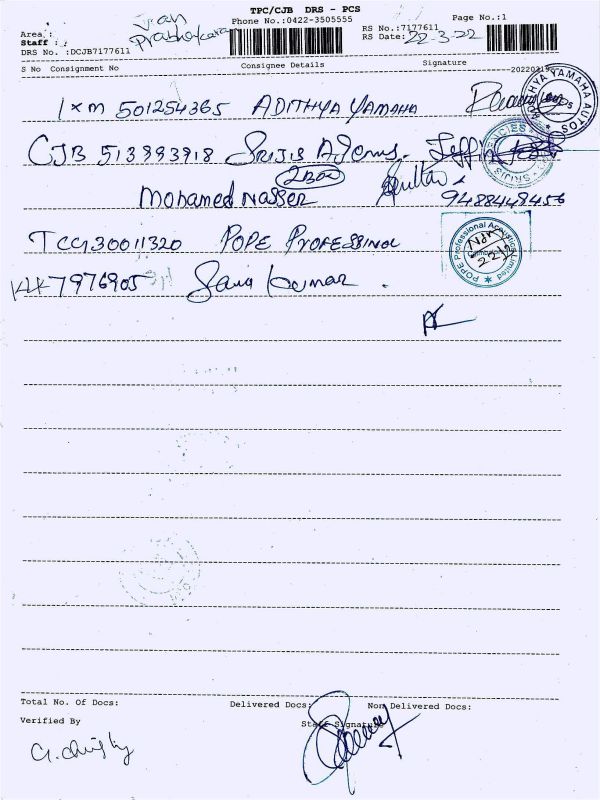 TPC/CJB DRS - PCS
Phone No.:0422-3505555
Page No.:1
Area :
Prabhakara
RS No.:7177611
Staff :
RS Date: 22-3-22
DRS No. :DCJB7177611
S No Consignment No Consignee Details Signature
IXM 501254365 ADITHYA YAMAHA
ADITHYA YAMAHA AUTOS
CJB 513993918
SRIJIS
Mohamed Nasser 2 Box 9488448456
TCG30011320 POPE PROFESSINOL
POPE Professional Acoustics Limited
KLK7976905 Kumar
Total No. Of Docs: Delivered Docs: Non Delivered Docs:
Verified By Staff Signature